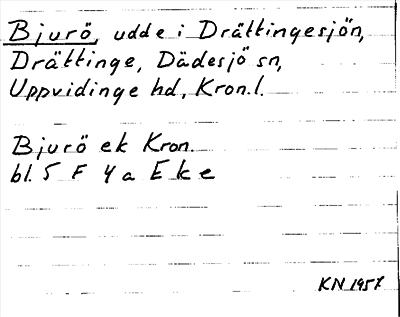 Bjurö, udde i Drättingesjön,
Drättinge, Dädesjö sn,
Uppvidinge hd, Kron.l.
Bjurö ek Kron.
bl. 5 F 4 a Eke
KN 1957